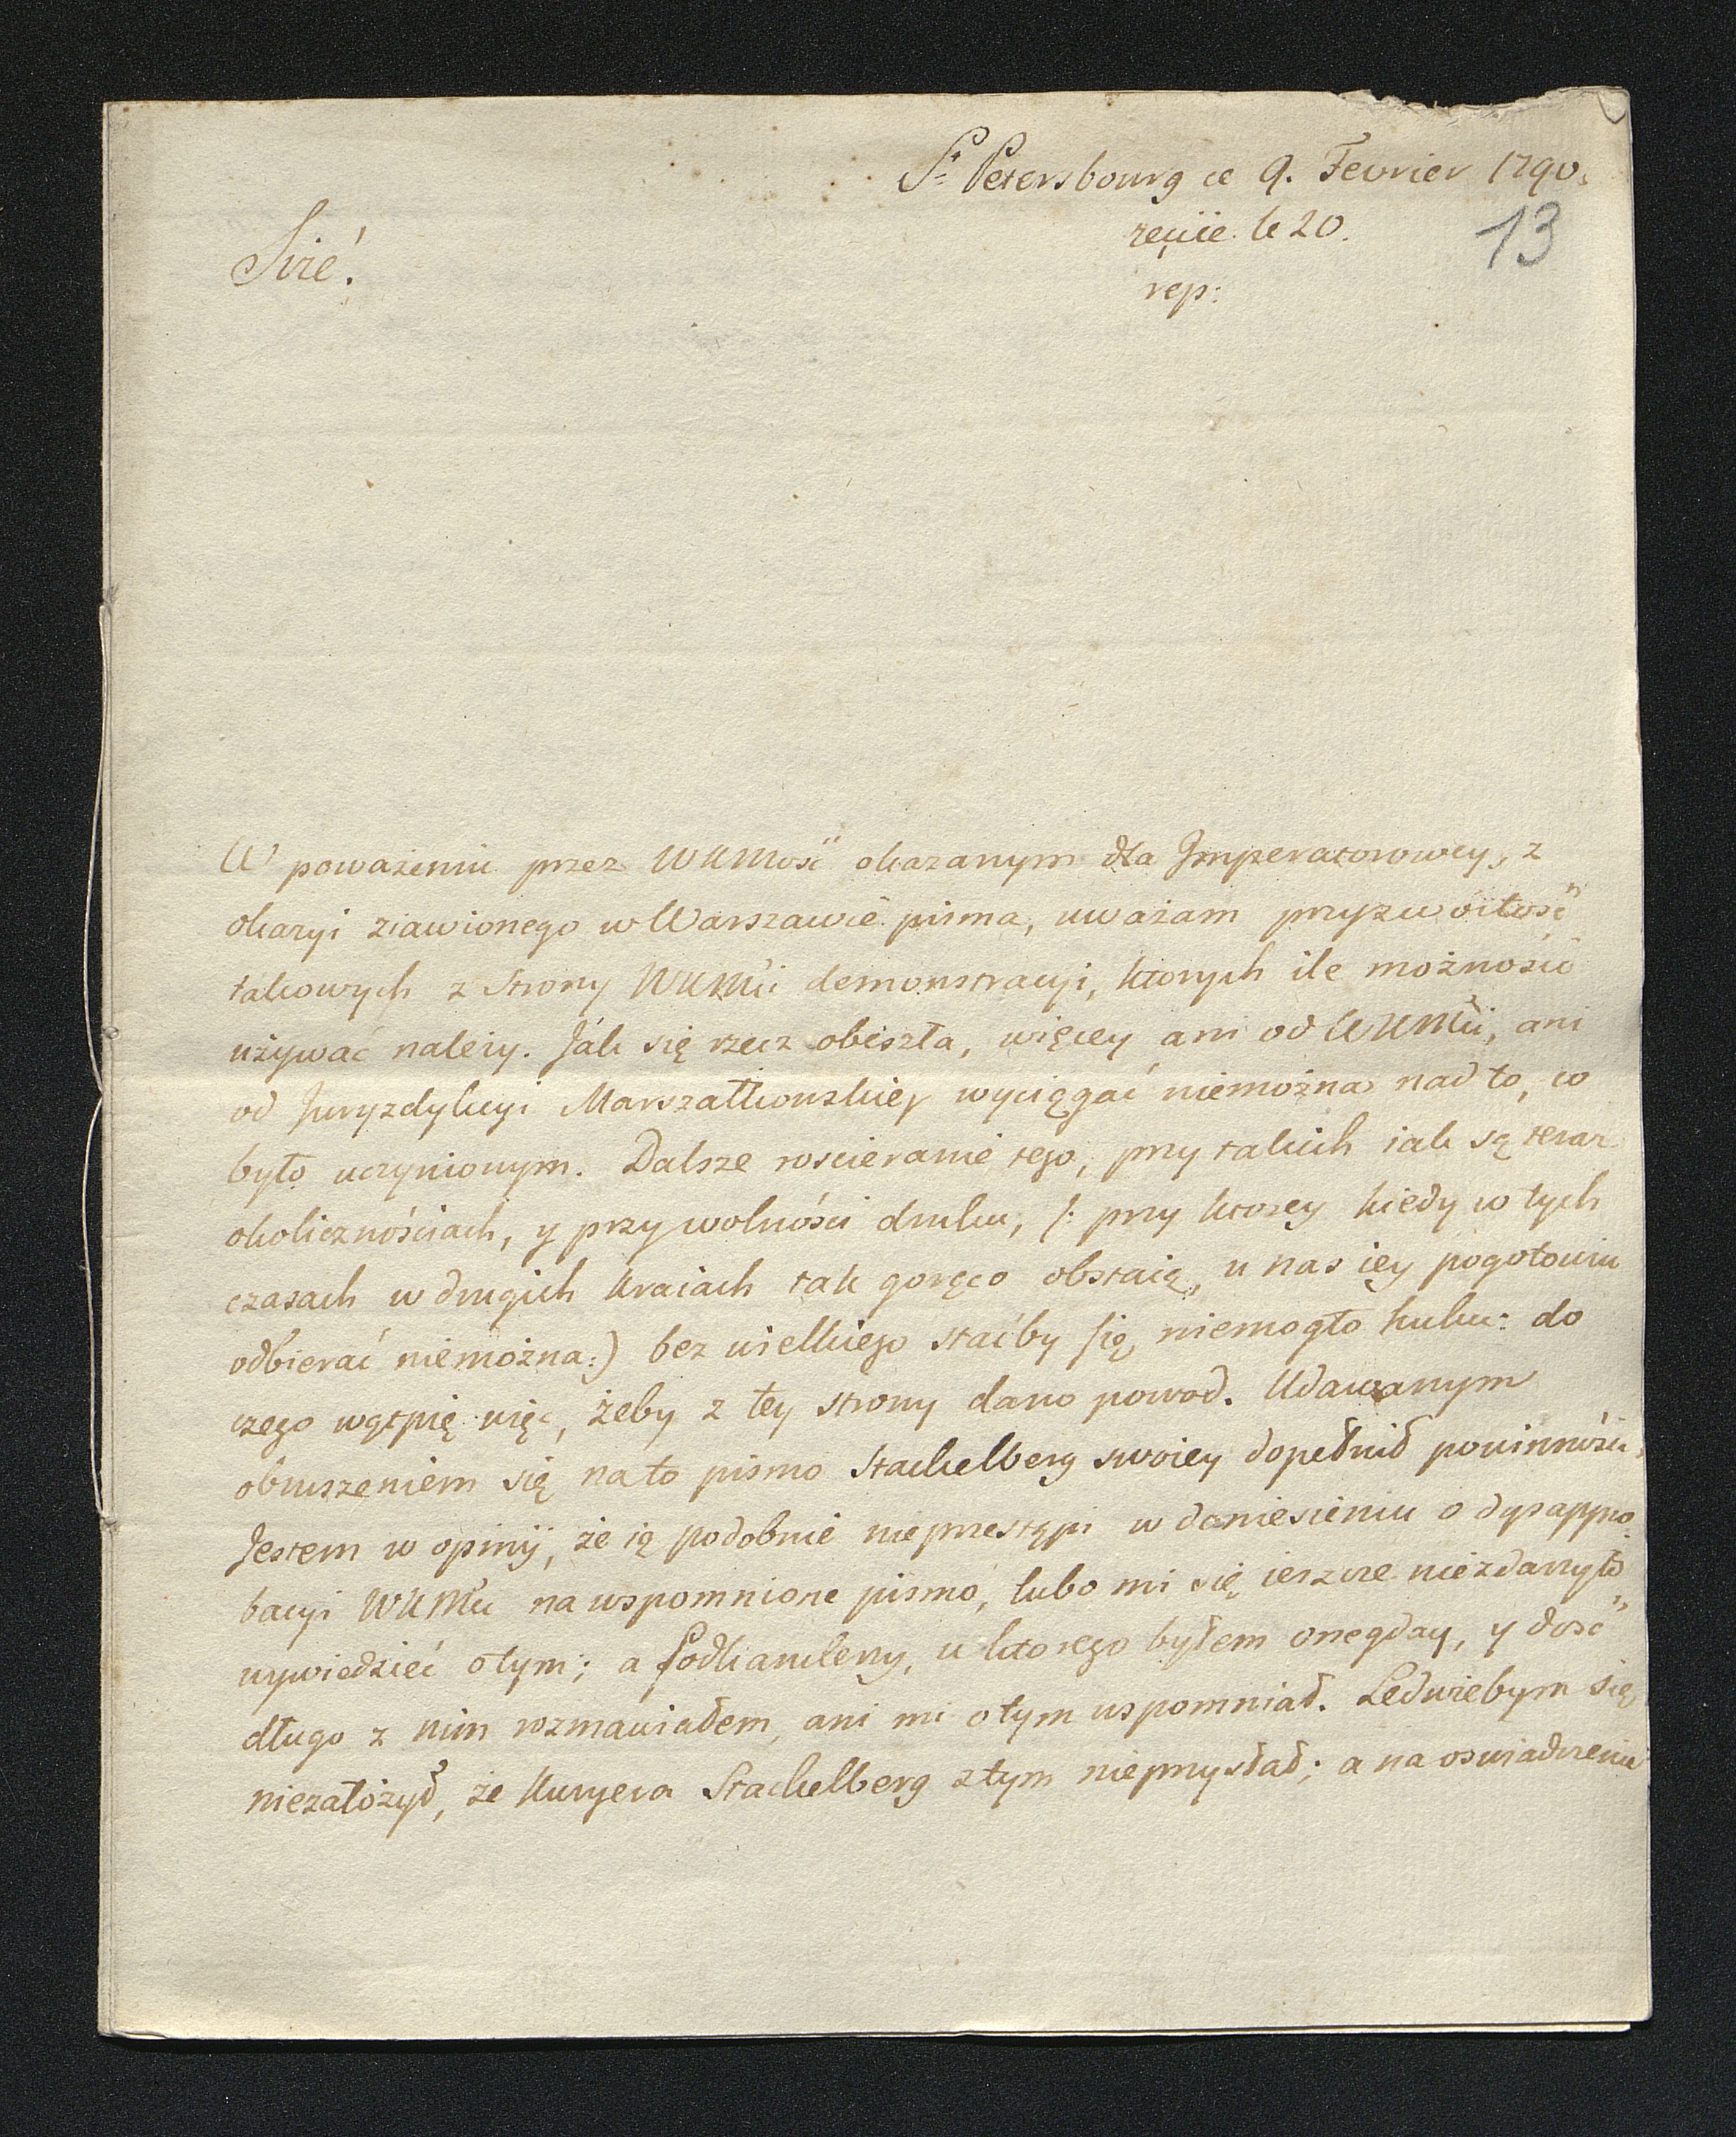 St Petersbourg ce 9. Fevrier 1790.
reçüe le 20.
13
Siré!
rep:
W poważeniu przez WKMość okazanym dla Imperatorowey, z
okazyi ziawionego w Warszawie pisma, uważam przyzwoitość
takowych z Strony WKMci demonstracyi, ktorych ile możności
używać należy. Ják się rzecz obeszła, więcey ani od WKMci, ani
od Juryzdykcyi Marszałkowskiey wyciągać niemożna nad to, co
było uczynionym. Dalsze roscieranie tego, przy takich iak są teraz
okolicznościach, y przy wolności druku, /: przy ktorey kiedy w tych
czasach w drugich Kraiach tak gorąco obstaią, u nas iey pogotowiu
odbierać niemożna:) bez wielkiego stać by się niemogło huku: do
czego wątpię więc, żeby z tey strony dano powod. Udawanym
obruszeniem się na to pismo Stackelberg swoiey dopełnił powinności,
Jestem w opinij, że ią podobnie nieprzestąpi w doniesieniu o dysappro-
bacyi WKMci na wspomnione pismo, lubo mi się ieszcze niezdarzyło
wywiedzieć o tym; a Podkanclerzy, u ktorego byłem onegday, y dość
długo z nim rozmawiałem, ani mi o tym wspomniał. Ledwiebym się
niezałożył, że Kuryera Stackelberg z tym nieprzysłał; a na oswiadczenie